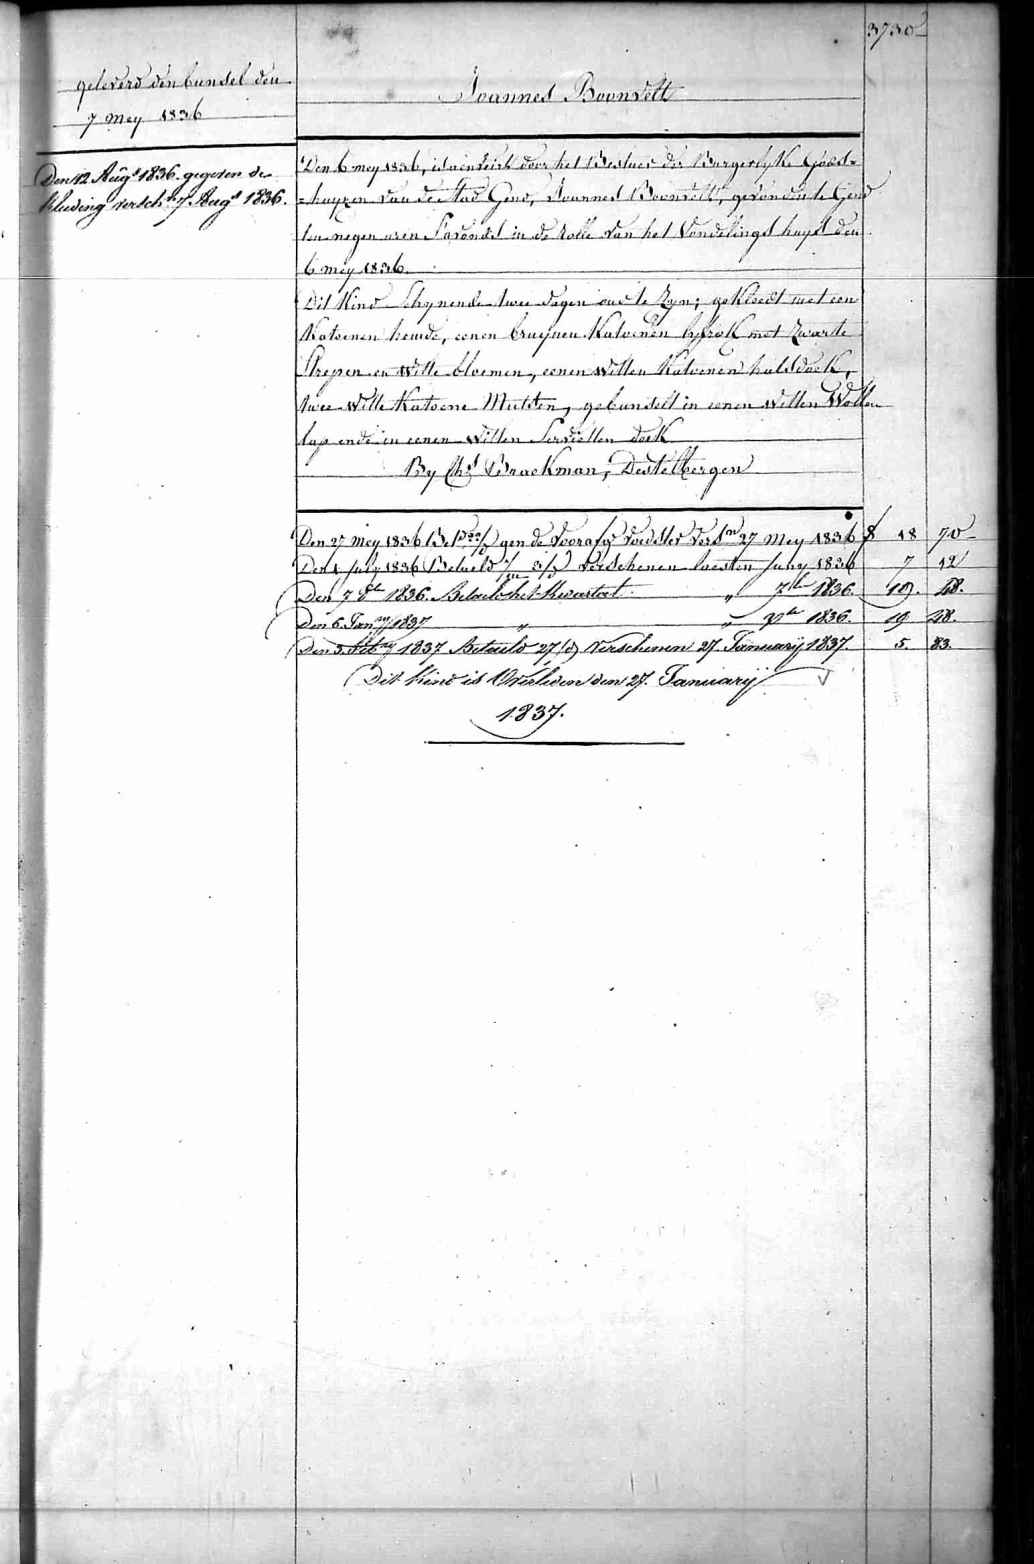 3730
gelevero den bunsel den
7 mey 1836
Joannes Boonvelt
Den 12 Augs 1836. gegeven de
kleeding versch. 7 Augs 1836.
Den 6 mey 1836, is door het Bestuer der Burgerlyke Gods=
=huyzen van de stad Gend, Joannes Boonvelt, gevonden te Gend
ten negen uren s'avonds in de rolle van het Vondelings huys den
6 mey 1836.
Dit Kind schynende twee dagen oud te zyn; gekleedt met een
Katoenen hemde, eenen bruynen Katoenen lyfrok met zwarte
strepen en witte bloemen, eenen witten Katoenen halsdoek,
twee witte Katoene Mutsen, gebunselt in eenen witten Wollen
lap ende in eenen witten Servietten doek
By Chs Braekman, Destelbergen
Den 27 mey 1836 gen de voorafg voedster vers. 27 Mey 1836 8 18 70
Den 1 july 1836 Betaeld 3/ Verschenen laesten juny 1836 7 12
Den 7 8te 1836. Betaeld het kwartael " 7be 1836. 19. 28.
Den 6. Jany 1837 " " Xbe 1836. 19 28.
Den 3. feby 1837 Betaeld 27 d Verschenen 27 Januarij 1837. 5. 83.
Dit Kind is Overleden den 27. Januarij
1837.